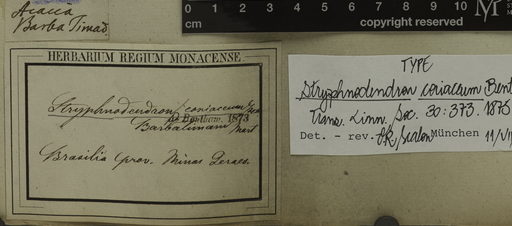 Acacia
Barba Timao
0 1 2 3 4 5 6 7 8 9 10
cm
copyright reserved
HERBARIUM REGIUM MONACENSE
Stryphnodendron coriaceum
Bentham. 1873
Barbatimam Mart
Brasilia prov. Minas Geraes.
TYPE
Stryphnodendron coriaceum Bent
Trans. Linn. Soc. 30: 373. 1875
Det. - rev. München